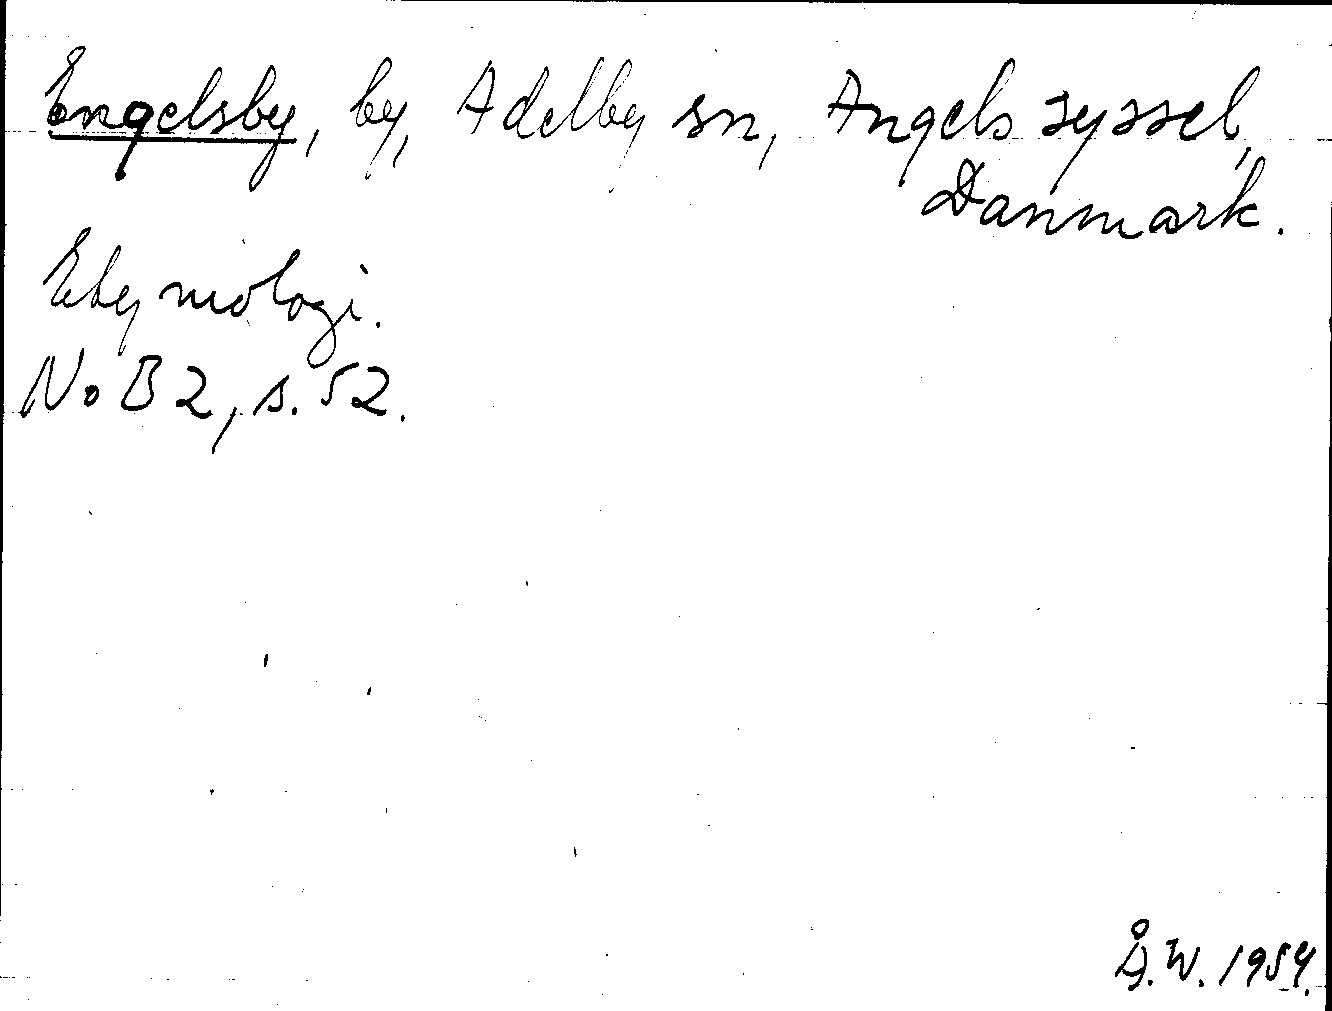 Engelsby, by, Adelby sn, Angels syssel,
Danmark.
Etymologi.
NoB 2, s. 52.
Å.W. 1954.